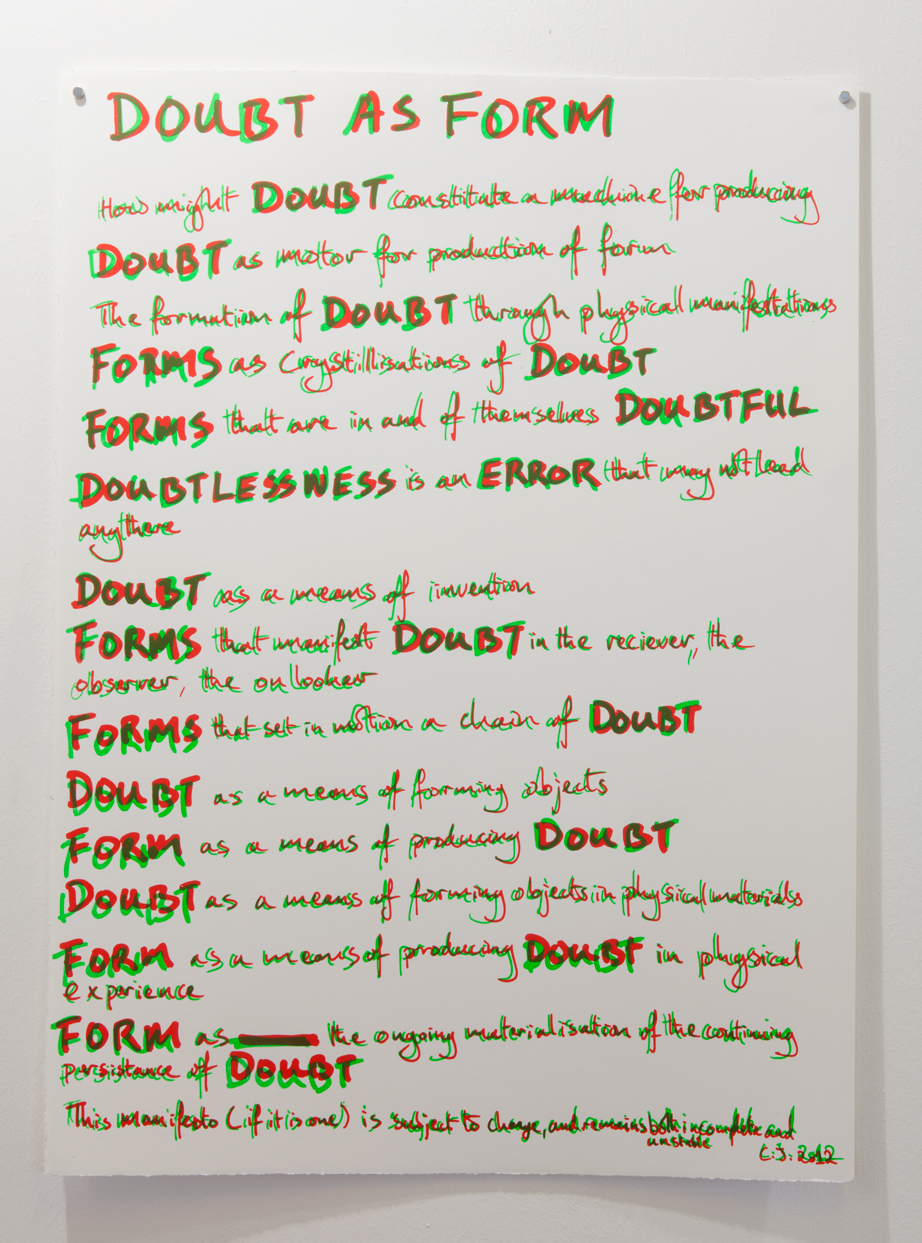 DOUBT AS FORM
How might DOUBT constitute a machine for producing
DOUBT as motor for production of form
The formation of DOUBT through physical manifestations
FORMS as crystillisations of DOUBT
FORMS that are in and of themselves DOUBTFUL
DOUBTLESSNESS is an ERROR that may not lead
anythere
DOUBT as a means of invention
FORMS that manifest DOUBT in the reciever, the
observer, the onlooker
FORMS that set in motion a chain of DOUBT
DOUBT as a means of forming objects
FORM as a means of producing DOUBT
DOUBT as a means of forming objects in physical materials
FORM as a means of producing DOUBT in physical
experience
FORM as the ongoing materialisation of the continuing
persistance of DOUBT
This manifesto (if it is one) is subject to change, and remains both incomplete and
unstable
C.J. 2012